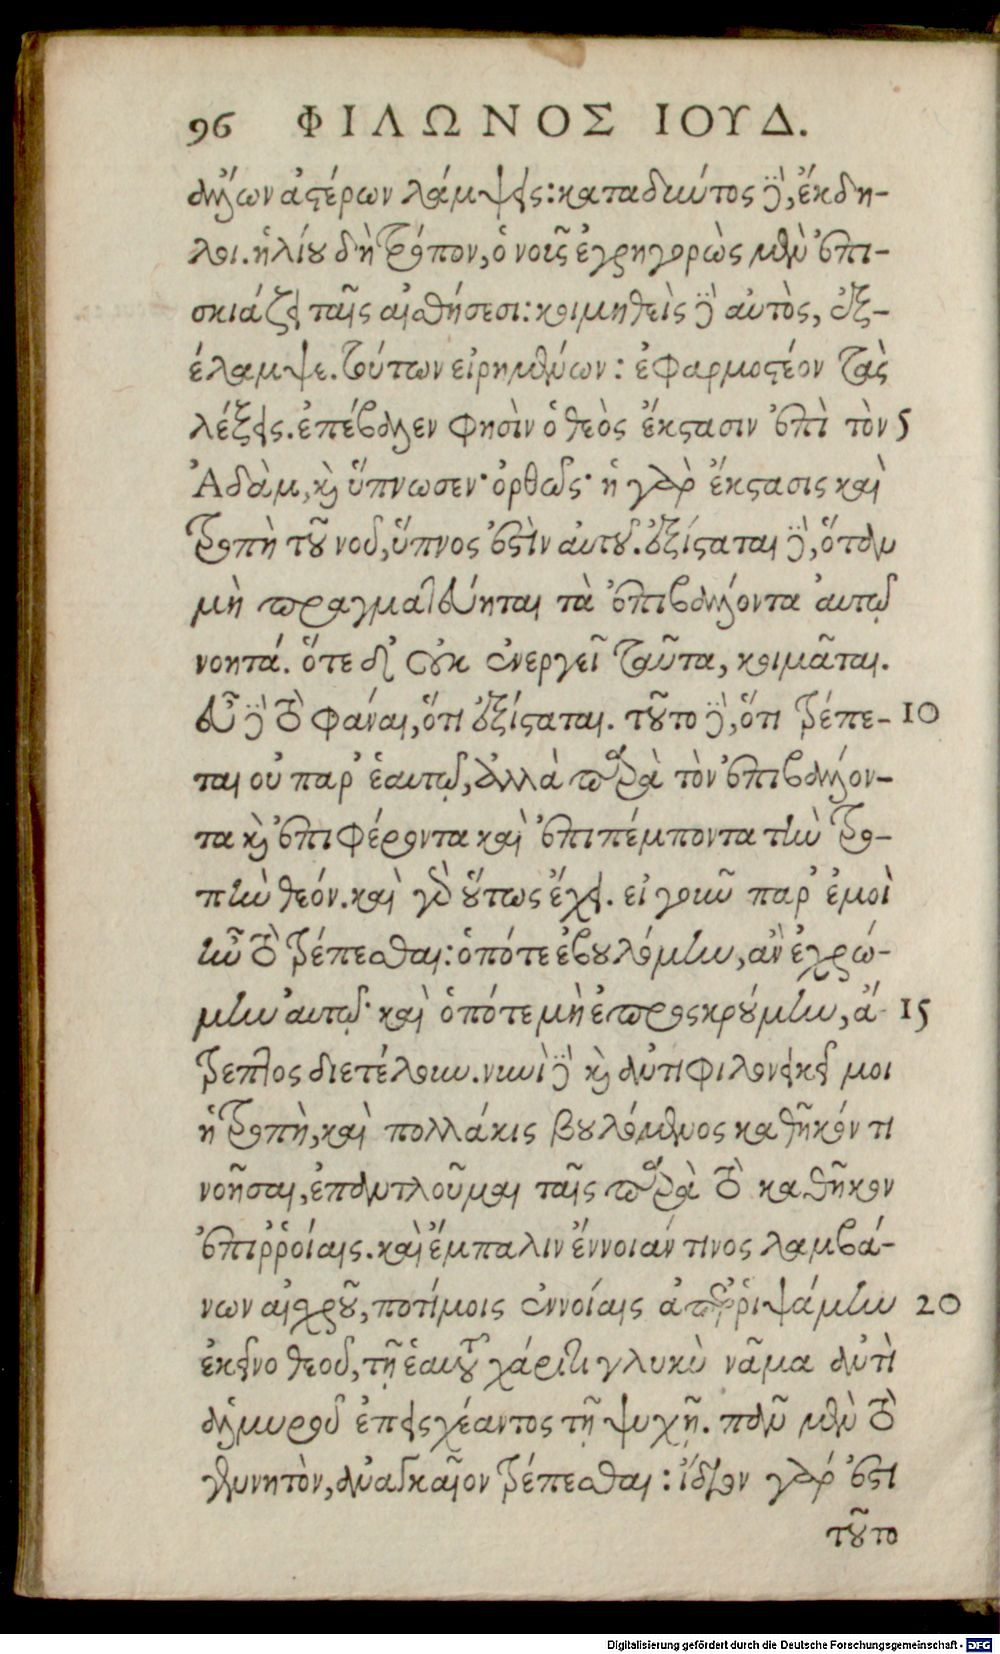 96 ΦΙΛΩΝΟΣ ΙΟΥΔ.
ἄλλων ἀστέρων λάμψεις: καταδιώτος δὲ, ἔκδη-
λοι. ἡλίου δὴ τρόπον, ὁ νοῦς ἐγρηγορὼς μὲν ἐπι-
σκιάζει ταῖς αἰσθήσεσι: κοιμηθεὶς δὲ αὐτὸς, ἐξ-
έλαμψε. τούτων εἰρημένων: ἐφαρμοστέον τὰς
λέξεις. ἐπέβαλεν φησὶν ὁ θεὸς ἔκστασιν ἐπὶ τὸν 5
Ἀδὰμ, καὶ ὕπνωσεν· ὀρθῶς· ἡ γὰρ ἔκστασις καὶ
τροπὴ τοῦ νοῦ, ὕπνος ἐστὶν αὐτοῦ. ἐξίσταται δὲ, ὅταν
μὴ πραγματεύηται τὰ ἐπιβάλλοντα αὐτῷ
νοητά. ὅτε δ' οὐκ ἐνεργεῖ ταῦτα, κοιμᾶται.
εὖ δὲ τὸ φάναι, ὅτι ἐξίσταται. τοῦτο δὲ, ὅτι τρέπε- 10
ται οὐ παρ' ἑαυτῷ, ἀλλὰ παρὰ τὸν ἐπιβάλλον-
τα καὶ ἐπιφέροντα καὶ ἐπιπέμποντα τὴν τρο-
πὴν θεόν. καὶ γὰρ οὕτως ἔχει. εἰ γοῦν παρ' ἐμοὶ
ἦν τὸ τρέπεσθαι: ὁπότε ἐβουλόμην, ἂν ἐχρώ-
μην αὐτῷ· καὶ ὁπότε μὴ ἐπροσκρούμην, ἄ- 15
τρεπτος διετέλουν. νυνὶ δὲ καὶ ἀντιφιλονεικεῖ μοι
ἡ τροπὴ, καὶ πολλάκις βουλόμενος καθῆκόν τι
νοῆσαι, ἐπαντλοῦμαι ταῖς παρὰ τὸ καθῆκον
ἐπιῤῥοίαις. καὶ ἔμπαλιν ἔννοιάν τινος λαμβά-
νων αἰσχροῦ, ποτίμοις ἐννοίαις ἀπερριψάμην 20
ἐκεῖνο θεοῦ, τῇ ἑαυτοῦ χάριτι γλυκὺ νᾶμα ἀντὶ
ἁλμυροῦ ἐπεισχέαντος τῇ ψυχῇ. πᾶν μὲν τὸ
γεννητὸν, ἀναγκαῖον τρέπεσθαι: ἴδιον γάρ ἐστι
τοῦτο
Digitalisierung gefördert durch die Deutsche Forschungsgemeinschaft - DFG